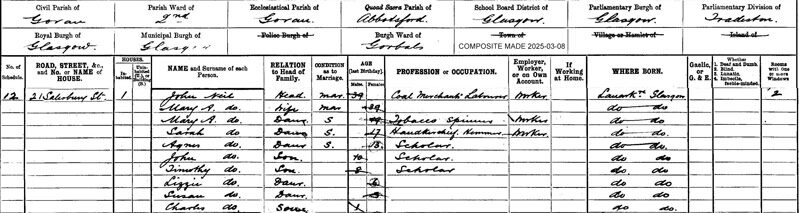 Civil Parish of Parish Ward of Ecclesiastical Parish of Quoad Sacra Parish of School Board District of Parliamentary Burgh of Parliamentary Division of
Govan 2nd Govan Abbotsford Glasgow Glasgow Tradeston
Royal Burgh of Municipal Burgh of Police Burgh of Burgh Ward of Town of Village or Hamlet of Island of
Glasgow Glasgow Gorbals COMPOSITE MADE 2025-03-08
No. of Schedule. ROAD, STREET, &c., and No. or NAME of HOUSE. HOUSES. NAME and Surname of each Person. RELATION to Head of Family. CONDITION as to Marriage. AGE (last Birthday). PROFESSION or OCCUPATION. Employer, Worker, or on Own Account. If Working at Home. WHERE BORN. Gaelic, or G. & E. Whether 1. Deaf and Dumb. 2. Blind. 3. Lunatic. 4. Imbecile, feeble-minded. Rooms with One or more Windows
Males. Females.
12 21 Salisbury St. 1 John Neil Head. mar 39 Coal Merchants Labourer Worker Lanark Glasgow 2
Mary A. do. Wife mar 39 do do
Mary A. do. Daur S. 19 Tobacco Spinner Worker do do
Sarah do. Daur S. 17 Handkerchief Hemmer Worker do do
Agnes do. Daur S. 13 Scholar do do
John do. Son. 10 Scholar. do do
Timothy do. Son. 8 Scholar do do
Lizzie do. Daur. do do
Susan do. Daur. do do
Charles do. 1 do. do